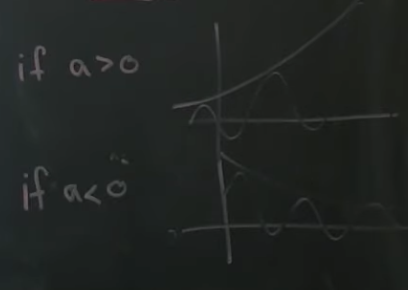 if a>0
if a<0